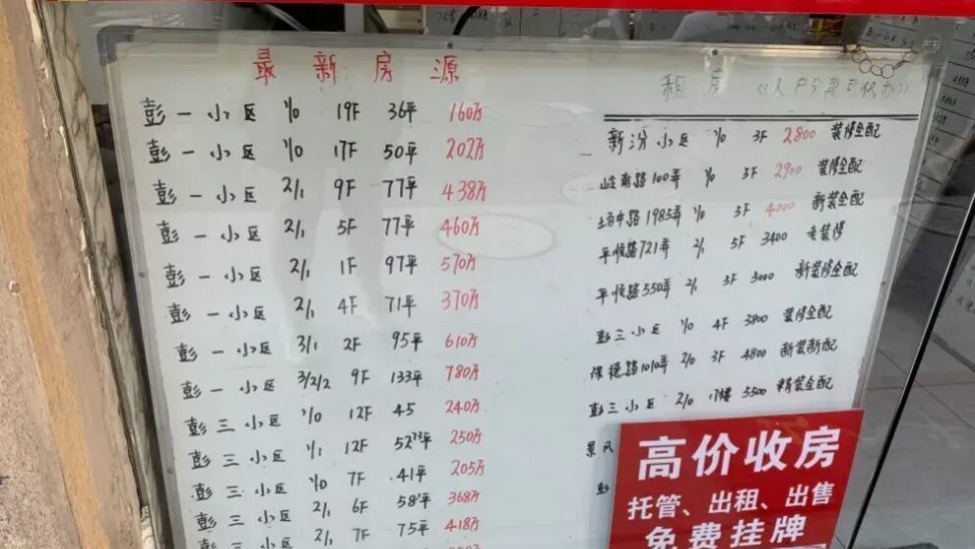 最新房源
彭一小区 1/0 19F 36平 160万
彭一小区 1/0 17F 50平 202万
彭一小区 2/1 9F 77平 438万
彭一小区 2/1 5F 77平 460万
彭一小区 2/1 1F 97平 570万
彭一小区 2/1 4F 71平 370万
彭一小区 3/1 2F 95平 610万
彭一小区 3/2/2 9F 133平 780万
彭三小区 1/0 12F 45 240万
彭三小区 1/1 12F 52平 250万
彭三小区 1/0 7F 41平 205万
彭三小区 2/1 6F 58平 368万
彭三小区 2/1 7F 75平 418万
租房
新汾小区 1/0 3F 2800 装修全配
路100弄 1/0 3F 2900 装修全配
中路1985弄 1/0 3F 4000 新装全配
平顺路721弄 2/1 5F 3400 装修
平顺路550弄 2/1 3F 3000 新装修全配
彭三小区 1/0 4F 3800 装修全配
保德路1010弄 2/0 3F 4800 新装新配
彭三小区 2/0 17楼 5500 精装全配
景凤
彭
高价收房
托管、出租、出售
免费挂牌